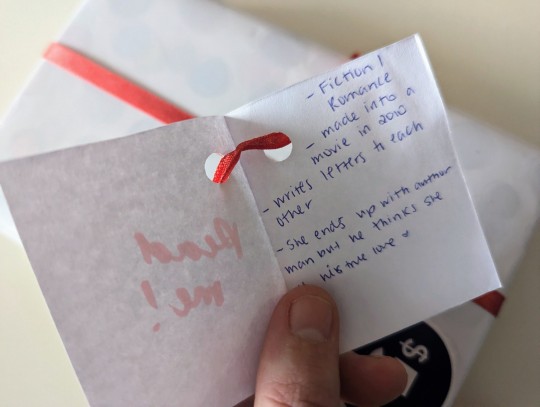 Read
me!
- Fiction /
Romance
- made into a
movie in 2010
- writes letters to each
other
- She ends up with another
man but he thinks she
his true love ♥
$